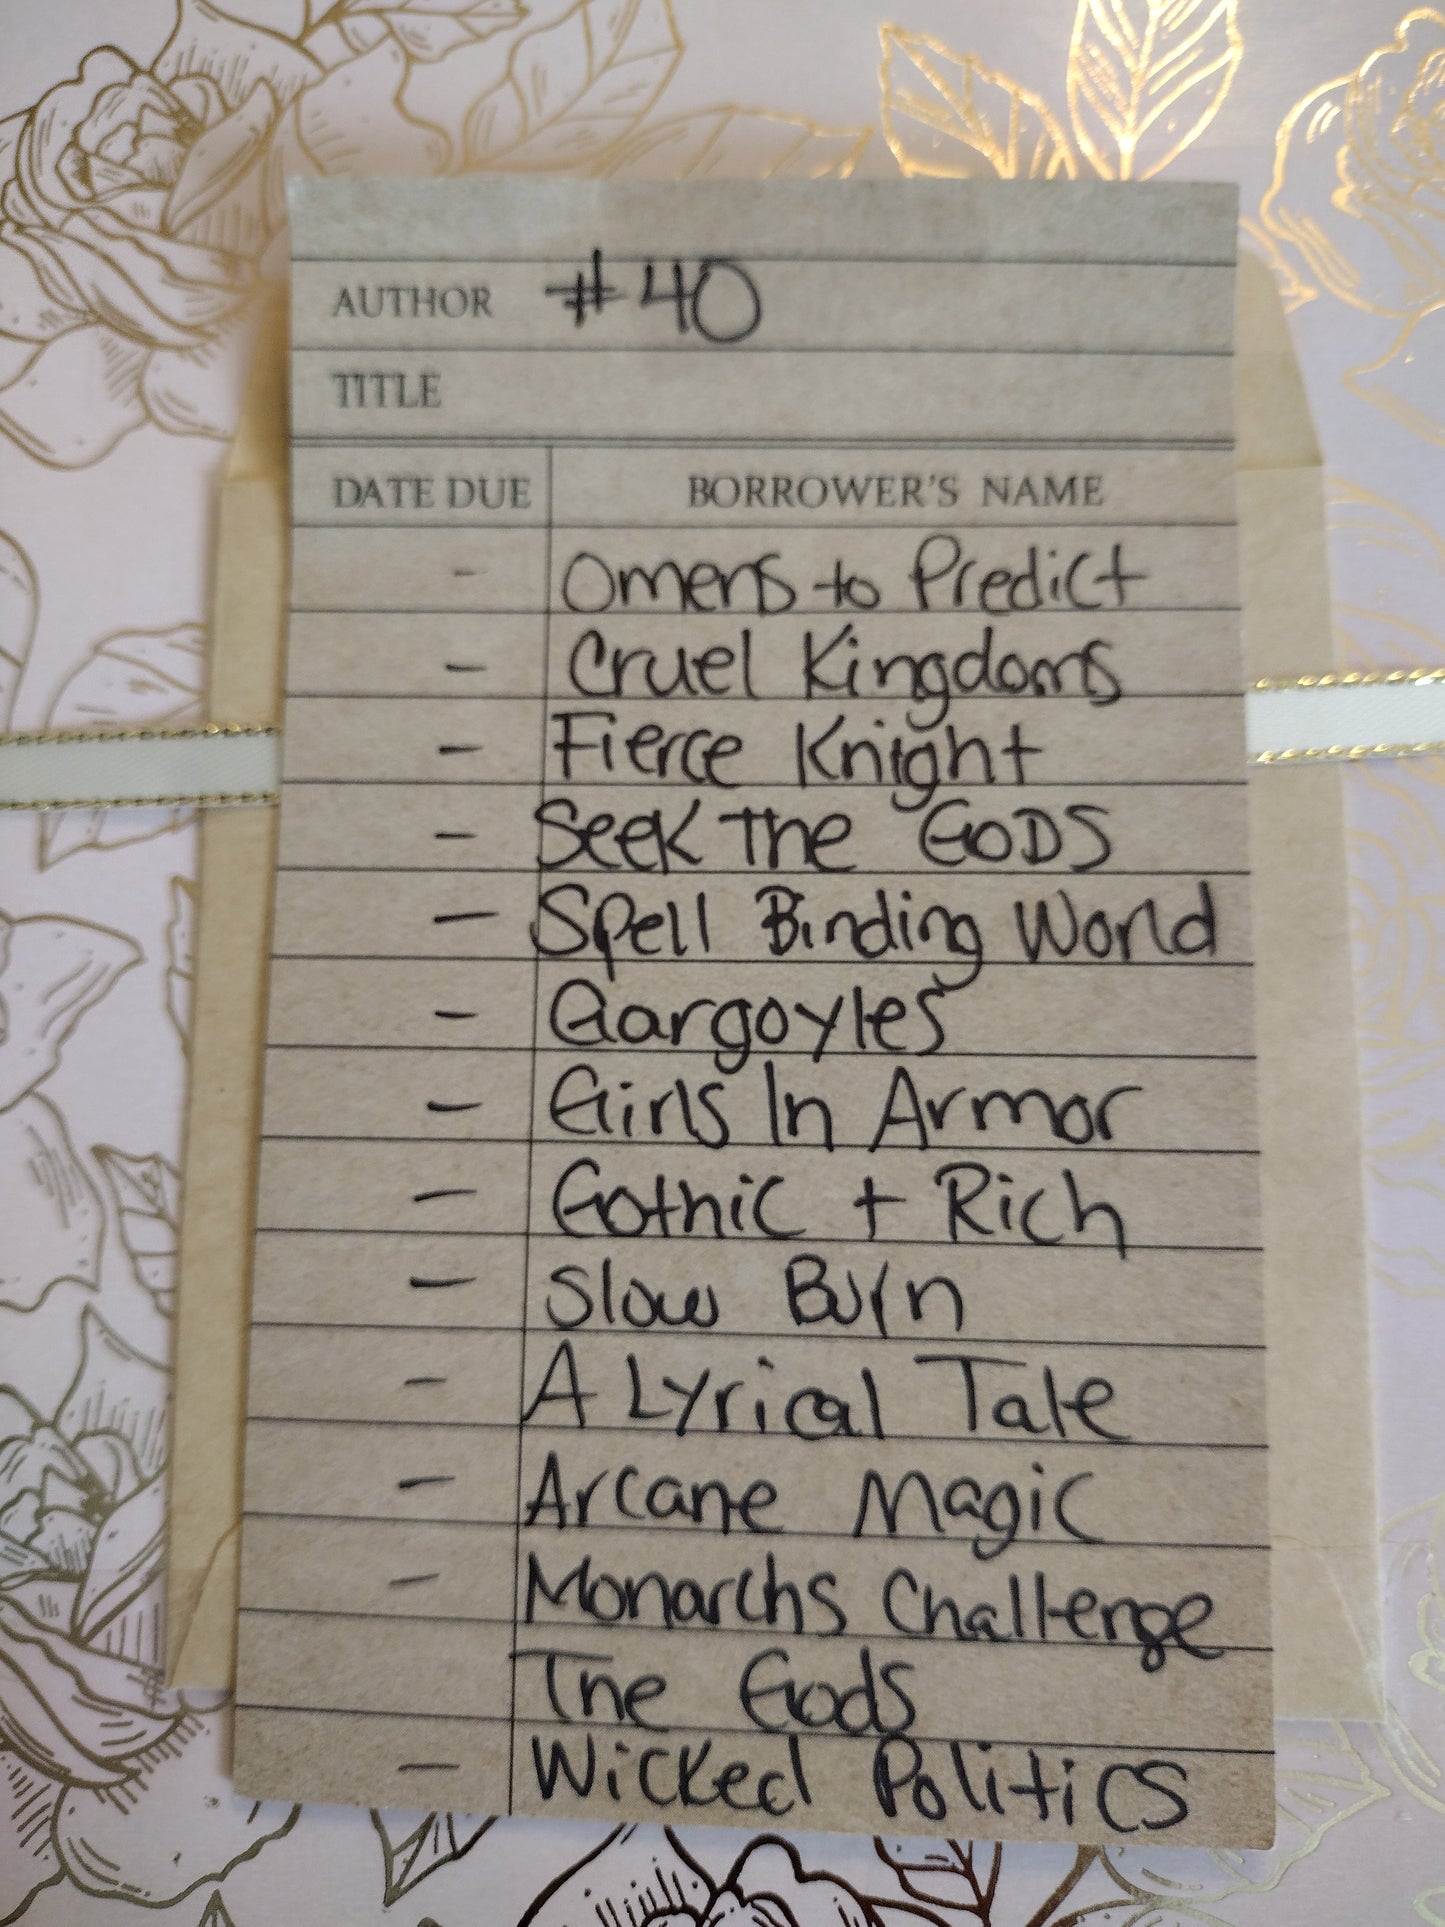 AUTHOR #40
TITLE
DATE DUE BORROWER'S NAME
- Omens to Predict
- Cruel Kingdoms
- Fierce Knight
- Seek The GODS
- Spell Binding World
- Gargoyles
- Girls In Armor
- Gothic + Rich
- Slow Burn
- A Lyrical Tale
- Arcane Magic
- Monarchs Challenge
The Gods
- Wicked Politics